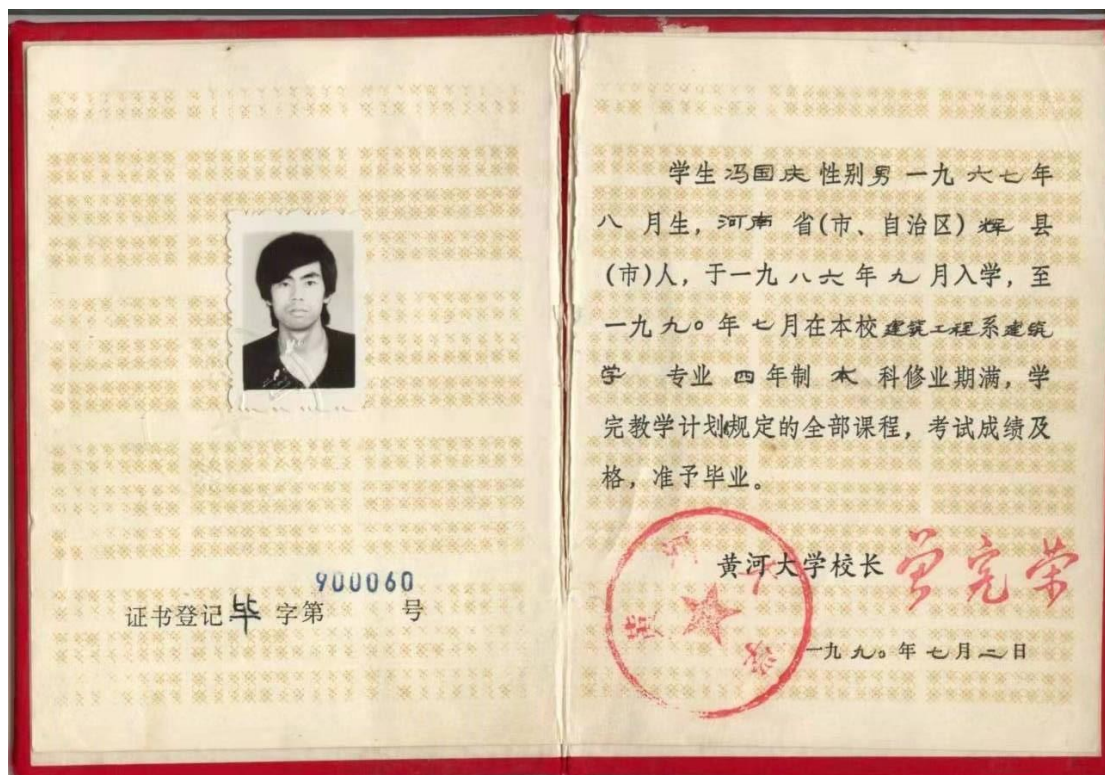 900060
证书登记毕字第 号
学生冯国庆性别男一九六七年
八月生，河南省(市、自治区)辉县
(市)人，于一九八六年九月入学，至
一九九〇年七月在本校建筑工程系建筑
学 专业四年制本科修业期满，学
完教学计划规定的全部课程，考试成绩及
格，准予毕业。
黄河大学校长 曾完荣
黄河大学
一九九〇年七月二日